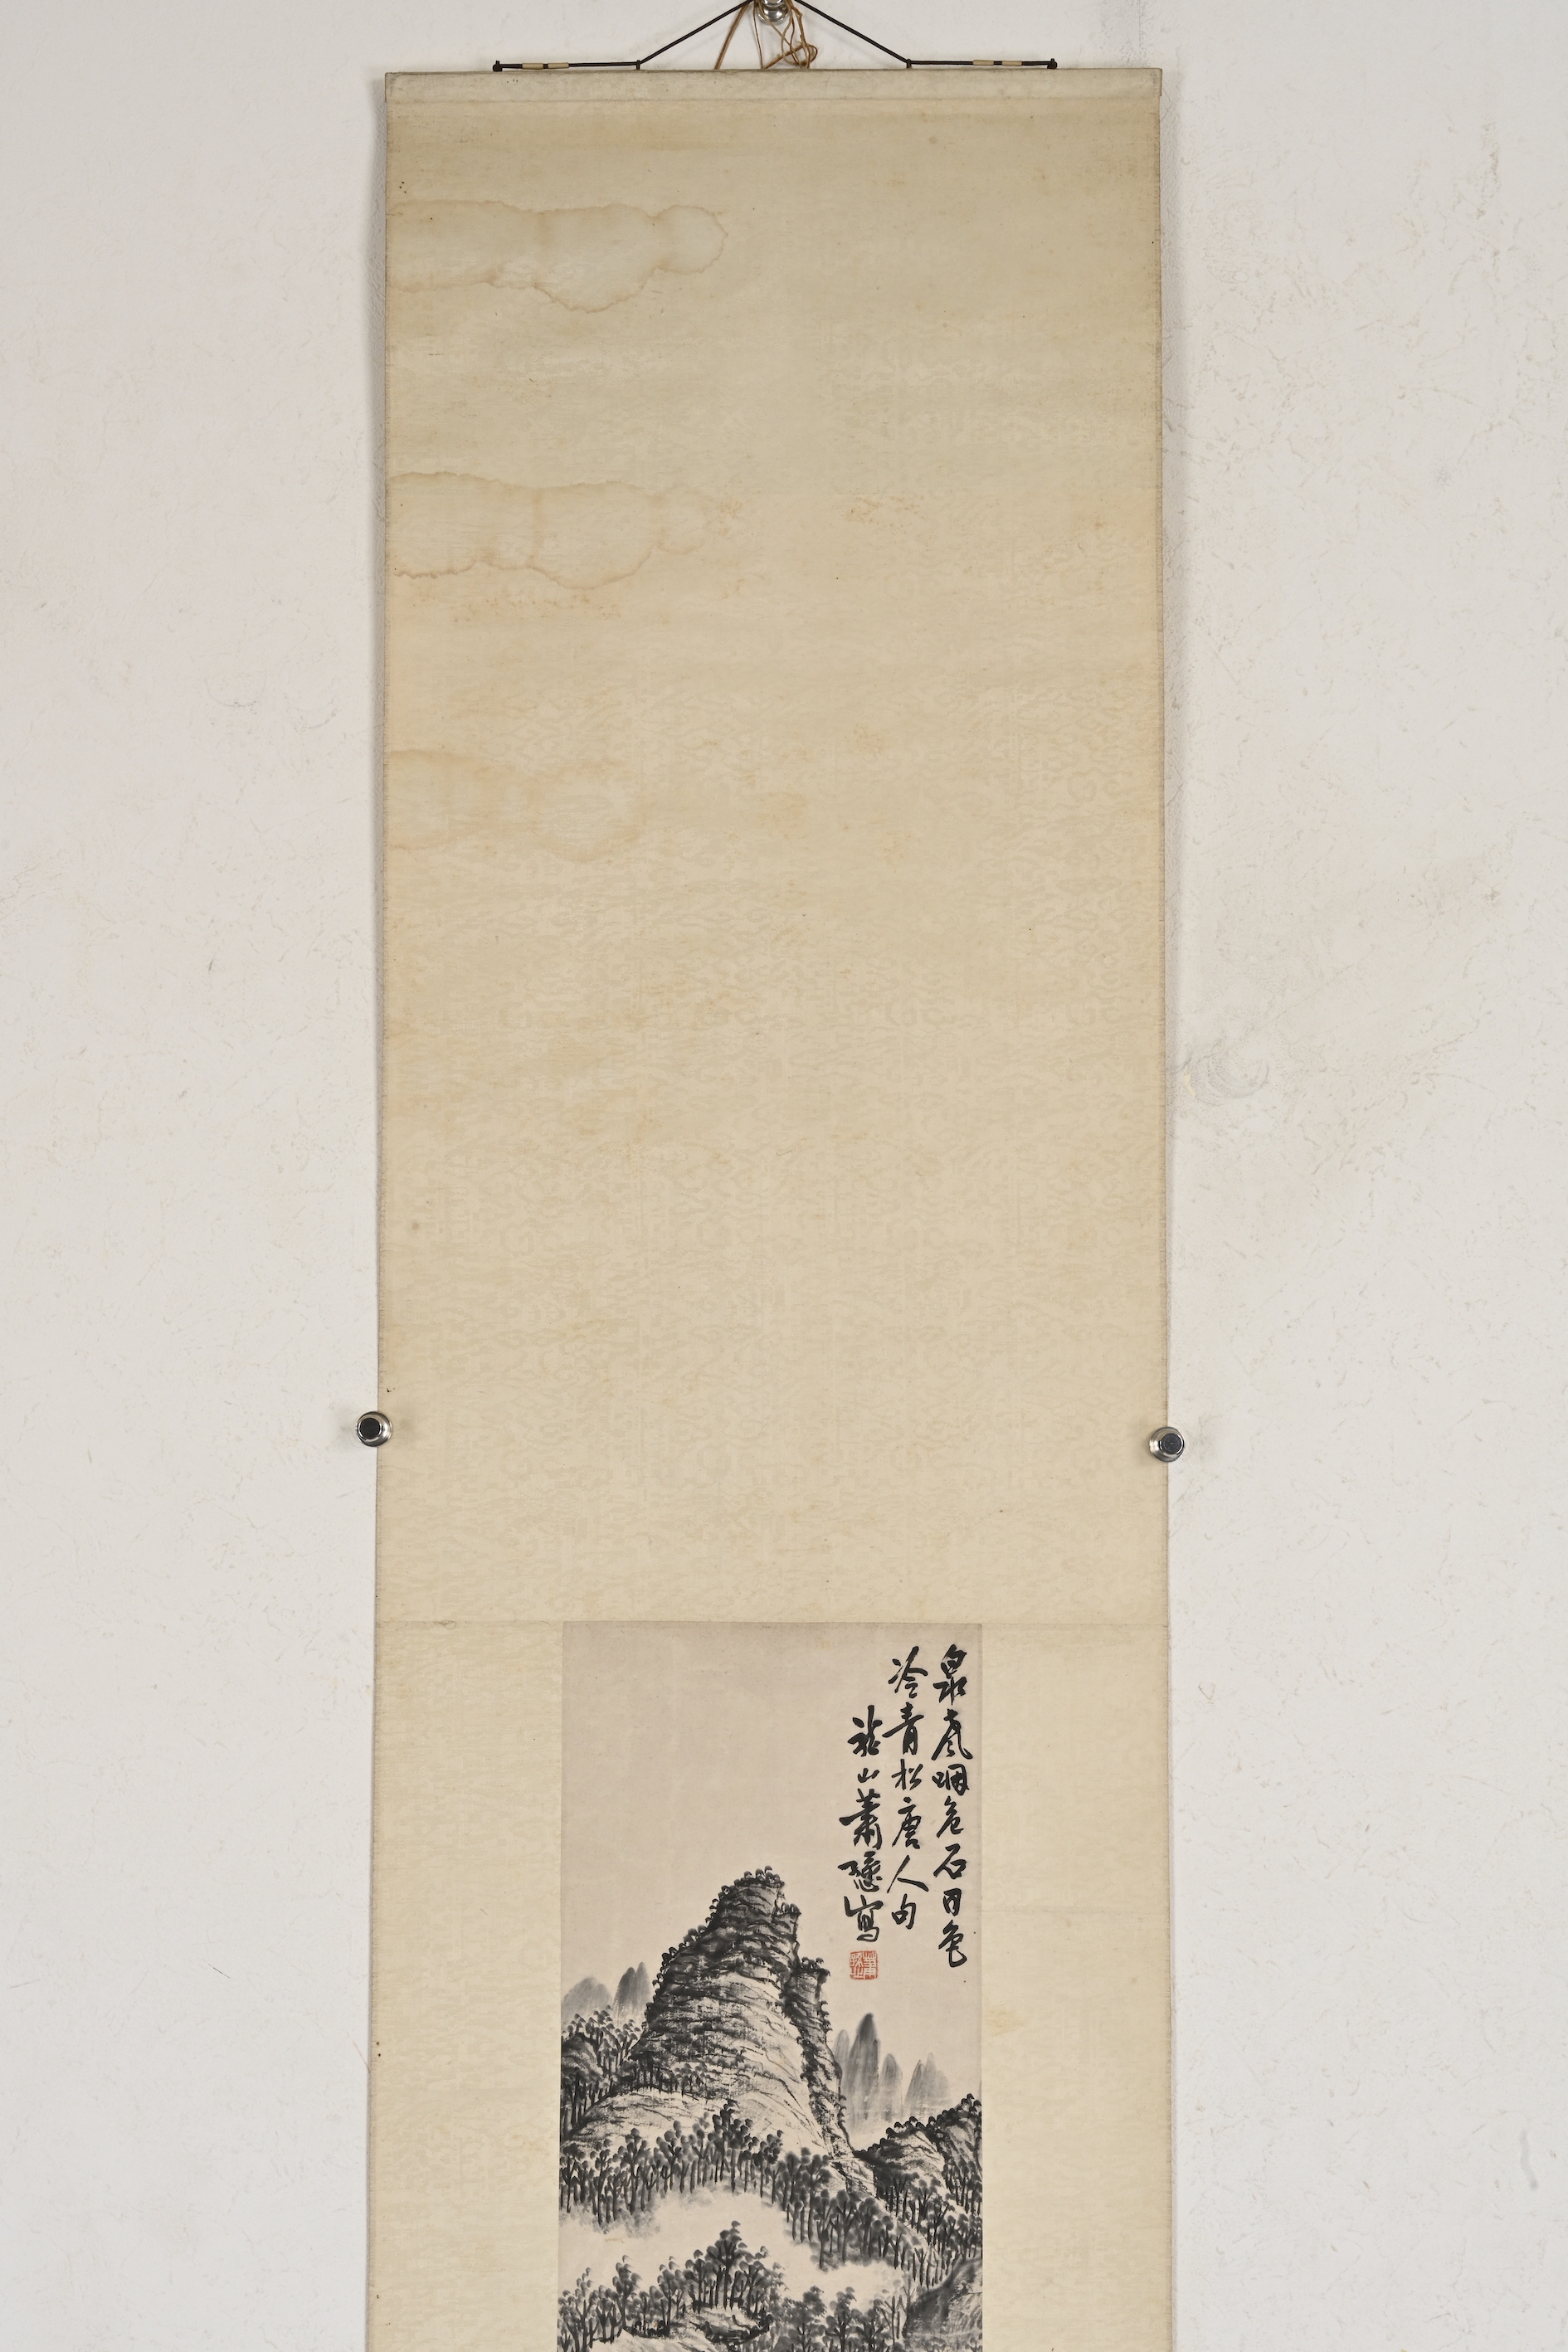 泉声咽危石日色
冷青松唐人句
龍山蕭愻寫